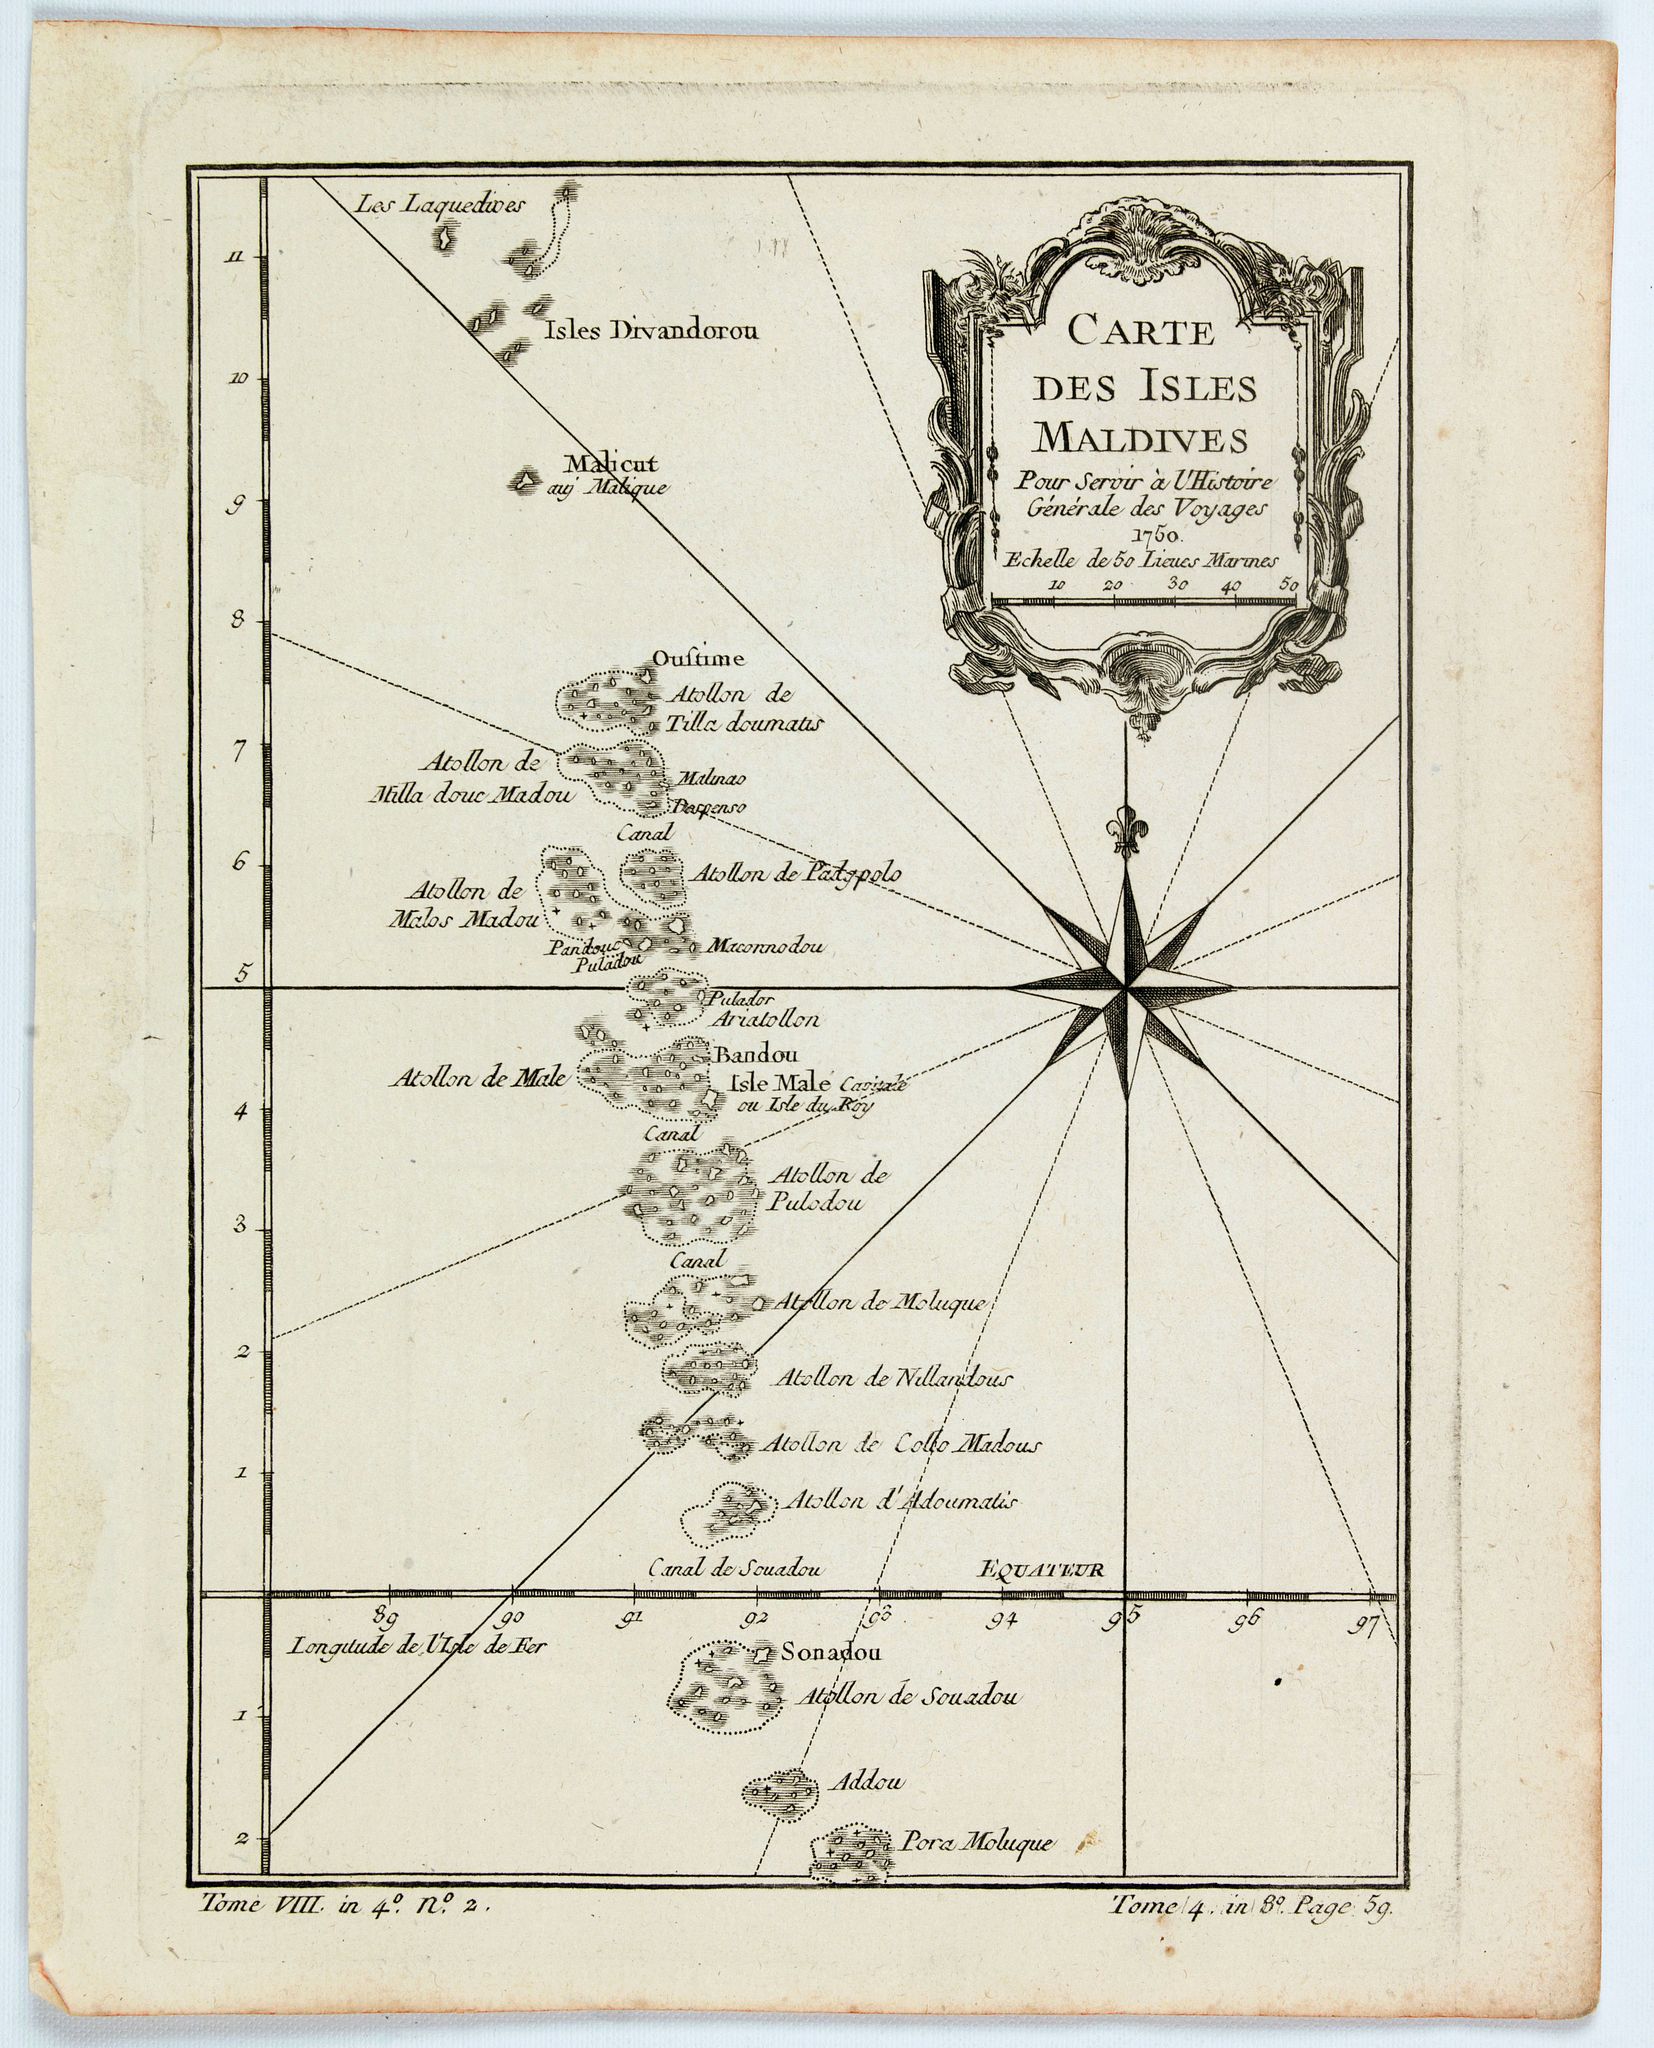 Les Laquedives
11
Isles Divandorou
10
Malicut
auj Malique
9
CARTE
DES ISLES
MALDIVES
Pour Servir à l'Histoire
Générale des Voyages
1750.
Echelle de 50 Lieues Marines
10 20 30 40 50
8
Oustime
Atollon de
Tilla doumatis
7
Atollon de
Milla douc Madou
Malinao
Despenso
Canal
6
Atollon de Padypolo
Atollon de
Malos Madou
Pandouc
Puladou
Maconnodou
5
Pulador
Ariatollon
Bandou
Atollon de Male
Isle Malé Capitale
ou Isle du Roy
4
Canal
Atollon de
Pulodou
3
Canal
Atollon de Moluque
2
Atollon de Nillandous
Atollon de Collo Madous
1
Atollon d'Adoumatis
Canal de Souadou
EQUATEUR
89 90 91 92 93 94 95 96 97
Longitude de l'Isle de Fer
Sonadou
Atollon de Souadou
1
Addou
2
Pora Moluque
Tome VIII. in 4º. Nº. 2.
Tome 4. in 8º. Page 59.